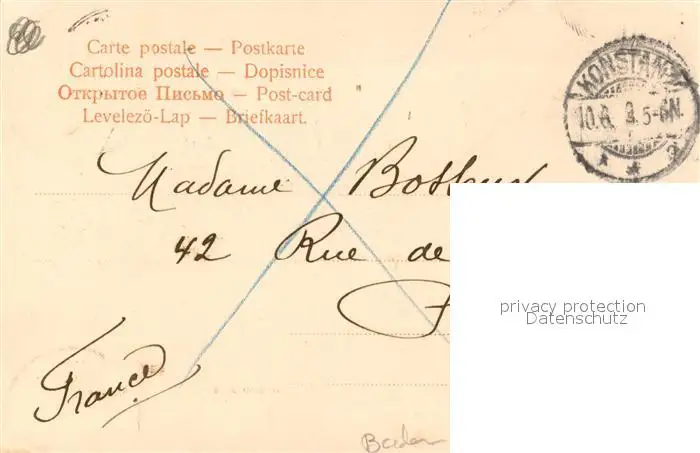 Carte postale — Postkarte
Cartolina postale — Dopisnice
Открытое Письмо — Post-card
Levelezö-Lap — Briefkaart.
KONSTANZ
10.8. 5-6N.
* * 3
Madame
42 Rue de
France
privacy protection
Datenschutz